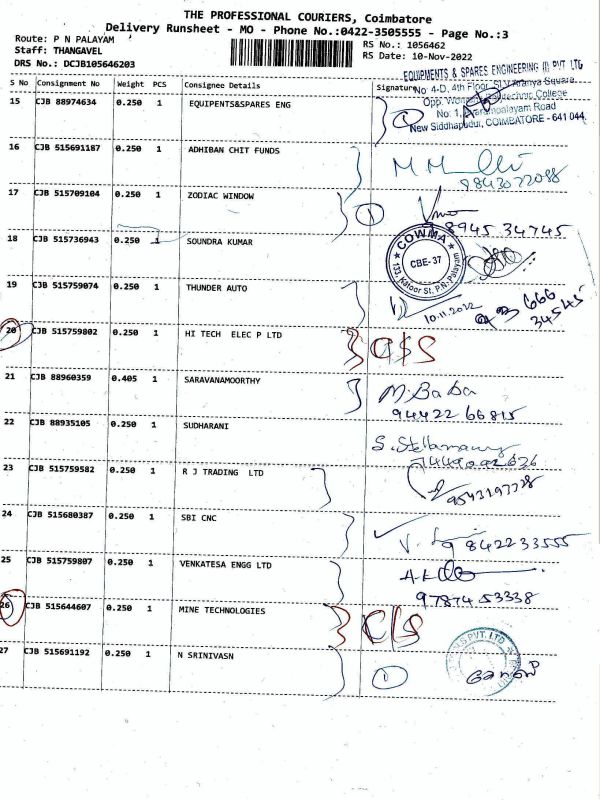 THE PROFESSIONAL COURIERS, Coimbatore
Delivery Runsheet - MO - Phone No.:0422-3505555 - Page No.:3
Route: P N PALAYAM
RS No.: 1056462
Staff: THANGAVEL
RS Date: 10-Nov-2022
DRS No.: DCJB105646203
EQUIPMENTS & SPARES ENGINEERING (I) PVT LTD
S No Consignment No Weight PCS Consignee Details Signature
No: 4-D, 4th Floor, Square
15 CJB 88974634 0.250 1 EQUIPENTS&SPARES ENG 1
Opp. College
No: 1, Road
New Siddhapudur, COIMBATORE - 641 044.
16 CJB 515691187 0.250 1 ADHIBAN CHIT FUNDS
9843072088
17 CJB 515709104 0.250 1 ZODIAC WINDOW 1
8945 34745
18 CJB 515736943 0.250 1 SOUNDRA KUMAR
COWMA
CBE-37
133, Katoor St. P.N. Palayam
19 CJB 515759074 0.250 1 THUNDER AUTO
10.11.2022
666
34545
20 CJB 515759802 0.250 1 HI TECH ELEC P LTD C/S
21 CJB 88960359 0.405 1 SARAVANAMOORTHY M. Baba
94422 66815
22 CJB 88935105 0.250 1 SUDHARANI
23 CJB 515759582 0.250 1 R J TRADING LTD
9543197728
24 CJB 515680387 0.250 1 SBI CNC
9842233555
25 CJB 515759807 0.250 1 VENKATESA ENGG LTD
97874 53338
26 CJB 515644607 0.250 1 MINE TECHNOLOGIES C/S
27 CJB 515691192 0.250 1 N SRINIVASN 1
PVT. LTD